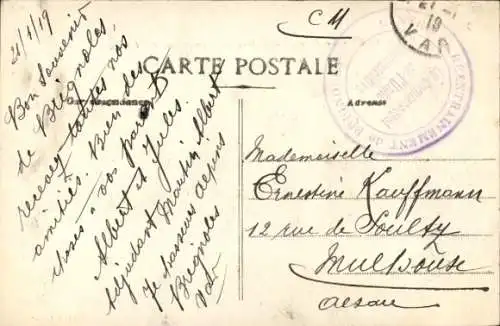 21/1/19
CM
21 - 1
19
VAR
CARTE POSTALE
Correspondance
Adresse
Bon Souvenir
de Brignoles,
recevez toutes nos
amitiés. Bien des
choses a vos parents
Albert et Jules
Adjudant Martin Albert
7e chasseurs alpins
Brignoles
Var
Mademoiselle
Ernestine Kauffmann
12 rue de Soultz
Mulhouse
Alsace